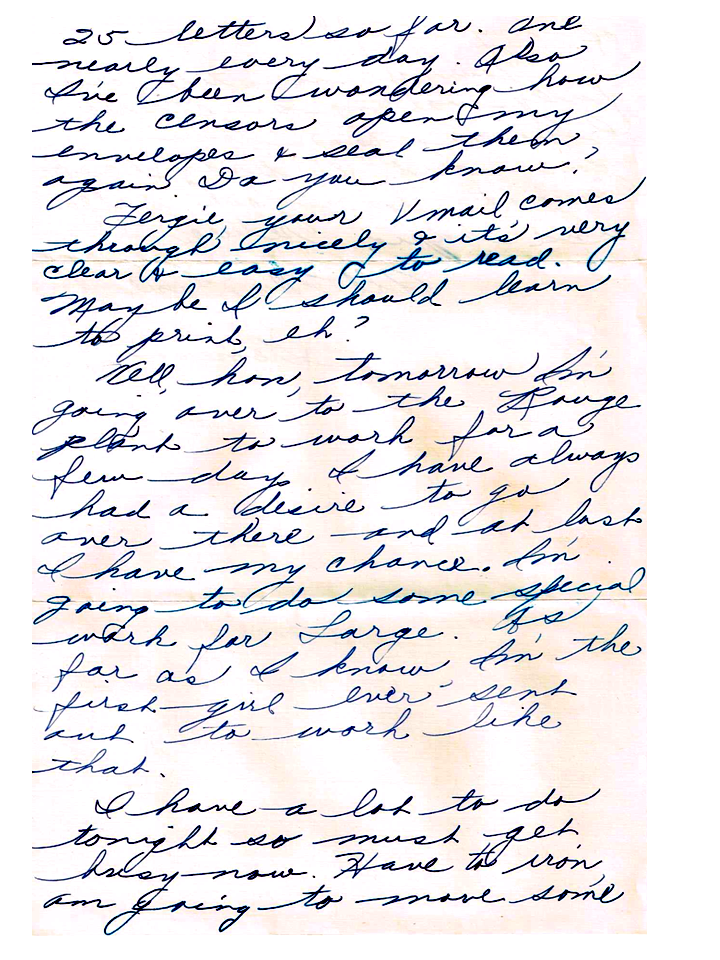 25 letters so far. One
nearly every day. Also
I've been wondering how
the censors open my
envelopes & seal them
again. Do you know?
Fergie, your Vmail comes
through nicely & it's very
clear & easy to read.
Maybe I should learn
to print, eh?
Well, hon, tomorrow I'm
going over to the Rouge
plant to work for a
few days. I have always
had a desire to go
over there and at last
I have my chance. I'm
going to do some special
work for Large. As
far as I know I'm the
first girl ever sent
out to work like
that.
I have a lot to do
tonight so must get
busy now. Have to iron,
am going to move some